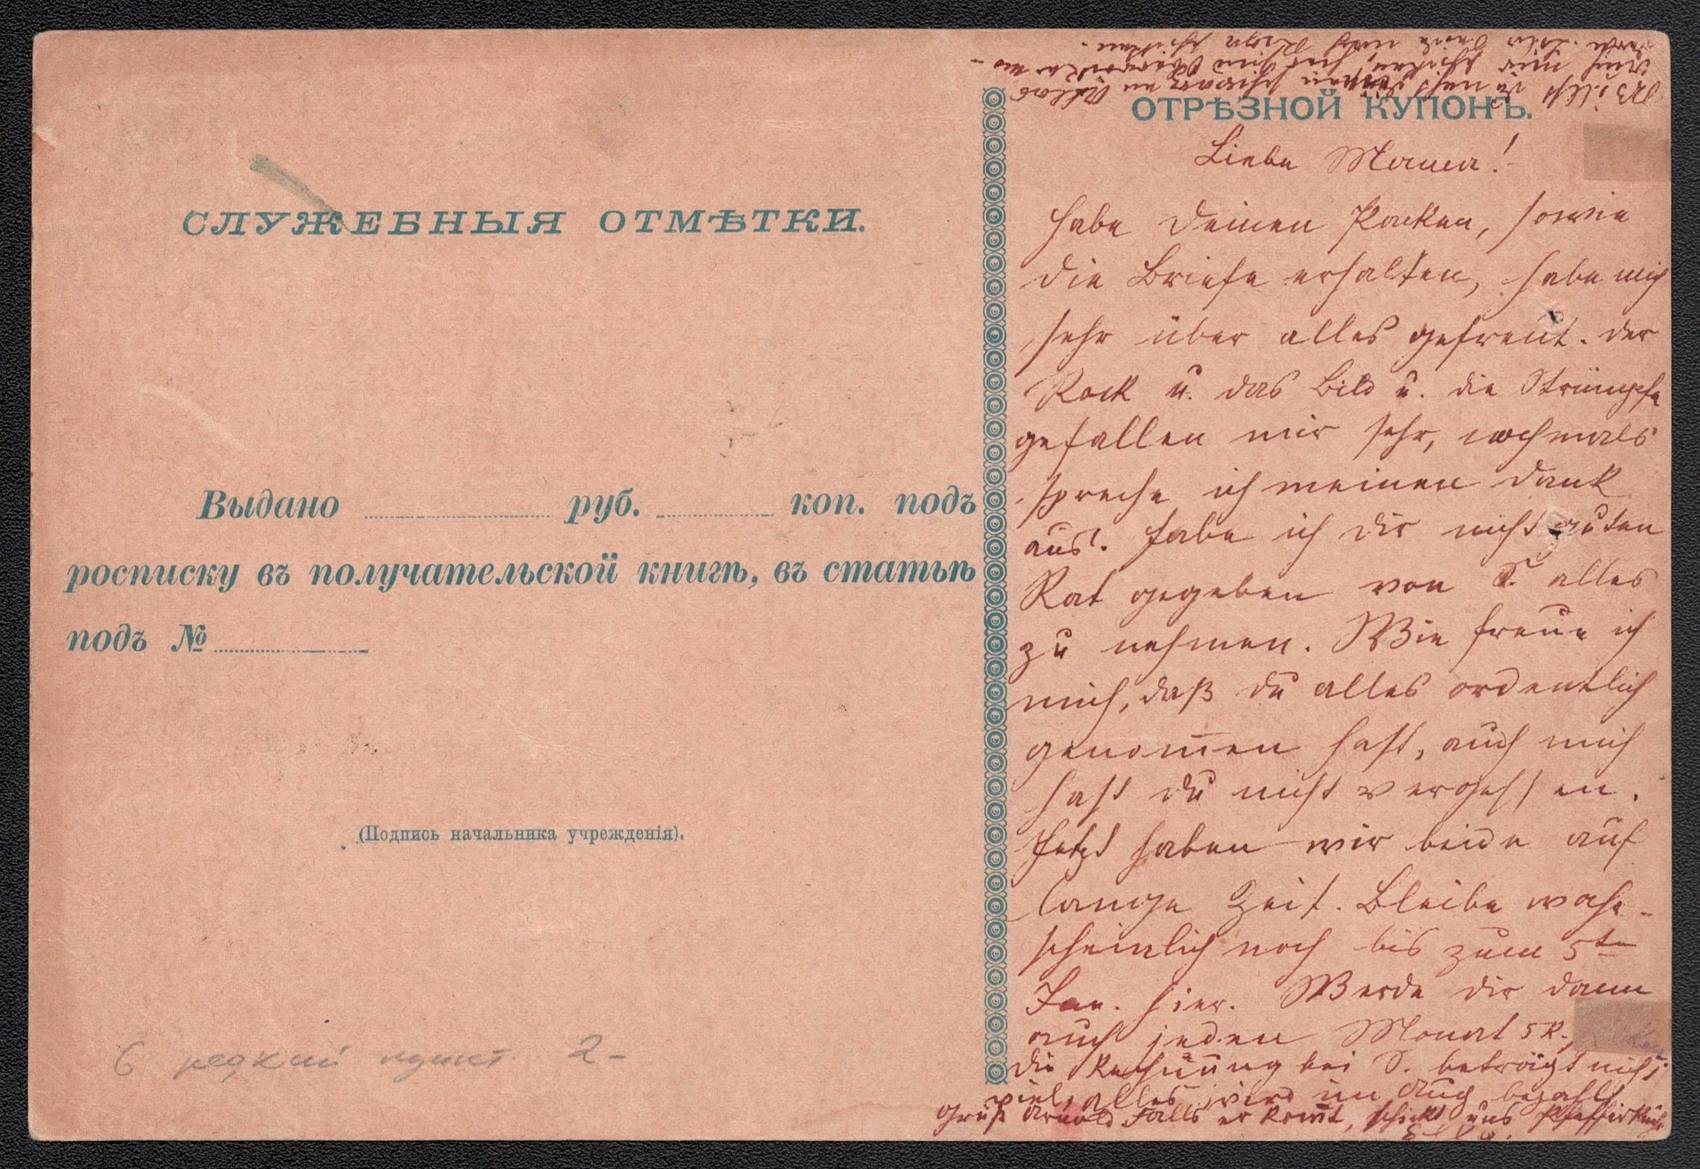 СЛУЖЕБНЫЯ ОТМѢТКИ.
Выдано руб. коп. подъ
росписку въ получательской книгѣ, въ статьѣ
подъ №
(Подпись начальника учрежденія).
6 редкий пункт 2-
ОТРѢЗНОЙ КУПОНЪ.
Liebe Mama!
Habe Deinen Packen, sowie
die Briefe erhalten, habe mich
sehr über alles gefreut. Der
Rock u. das Bild u. die Strümpfe
gefallen mir sehr, nochmals
spreche ich meinen Dank
aus. Habe ich dir nicht guten
Rat gegeben von S. alles
zu nehmen. Wie freue ich
mich, daß du alles ordentlich
genom̅en hast, auch mich
hast du nicht vergessen.
Jetzt haben wir beide auf
lange Zeit. Bleibe wahr-
scheinlich noch bis zum 5ten
Jan. hier. Werde dir dann
auch jeden Monat 5 R.,
die Rechnung bei S. beträgt nicht
viel, alles wird im Aug bezahlt
Grüß Arnold Falls er kom̅t, schickt uns
Willst du nicht